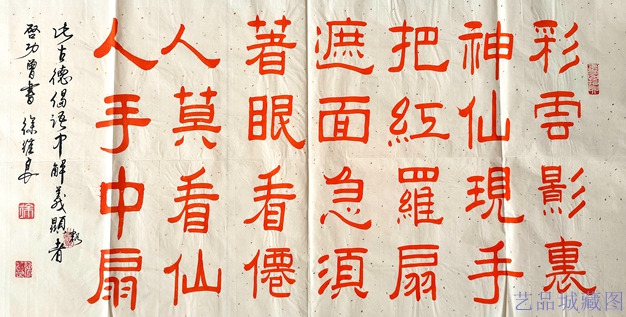 彩雲影裏
神仙現手
把紅羅扇
遮面急須
著眼看僊
人莫看仙
人手中扇
此古德偈語中解義顯者
啓功曾書 徐維
艺品城藏图